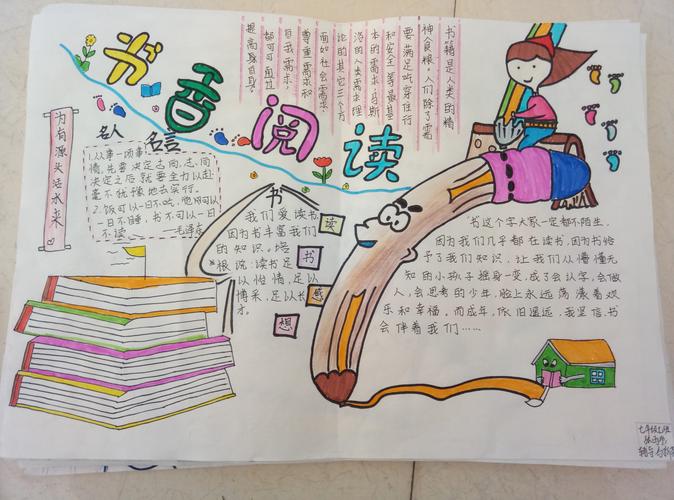 书香阅读
书籍是人类的精
神食粮,人们除了需
要满足吃穿住行
和安全等最基
本的需求,马斯
洛的人类需求理
论的其它三个方
面如社会需求、
尊重需求和
自我需求,
都可可通过
提高身自我。
为有源头活水来
名人 名言
1.从事一项事
情,先要决定志向,志向
决定之后就要全力以赴
毫不犹豫地去实行。
2.饭可以一日不吃,觉可以
一日不睡,书不可以一日
不读 —毛泽东
书
我们爱读书,
因为书丰富我们
的知识。培
根说:读书足
以怡情,足以
博采,足以长
才。
读
书
感
想
书这个字大家一定都不陌生,
因为我们几乎都在读书,因为书给
予了我们知识,让我们从懵懂无
知的小孩子摇身一变,成了会认字,会做
人,会思考的少年,脸上永远荡漾着欢
乐和幸福。而成年,依旧遥远,我坚信,书
会伴着我们……
七年级七班
辅导